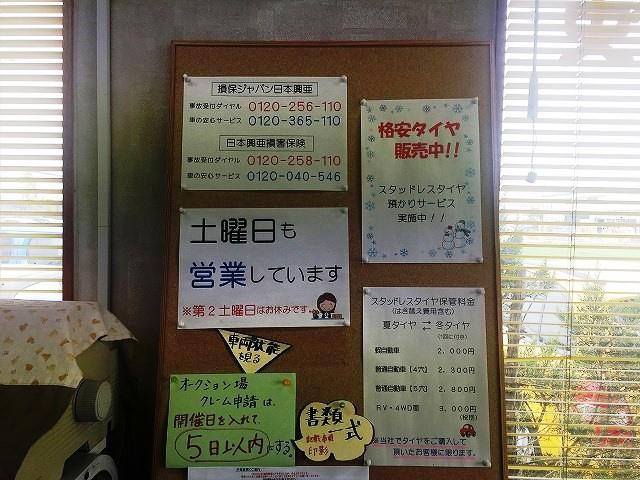 損保ジャパン日本興亜
事故受付ダイヤル 0120-256-110
車の安心サービス 0120-365-110
日本興亜損害保険
事故受付ダイヤル 0120-258-110
車の安心サービス 0120-040-546
格安タイヤ
販売中!!
スタッドレスタイヤ
預かりサービス
実施中!!
土曜日も
営業しています
※第2土曜日はお休みです
スタッドレスタイヤ保管料金
(はき替え費用含む)
夏タイヤ ⇄ 冬タイヤ
(1回に付き)
軽自動車 2,000円
普通自動車【4穴】 2,300円
普通自動車【5穴】 2,800円
RV・4WD車 3,000円
(税別)
※当社でタイヤをご購入して
頂いたお客様に限ります。
車両状態
を見る
オークション場
クレーム申請は、
開催日を入れて、
5日以内にする。
書類一式
記載事項
印影